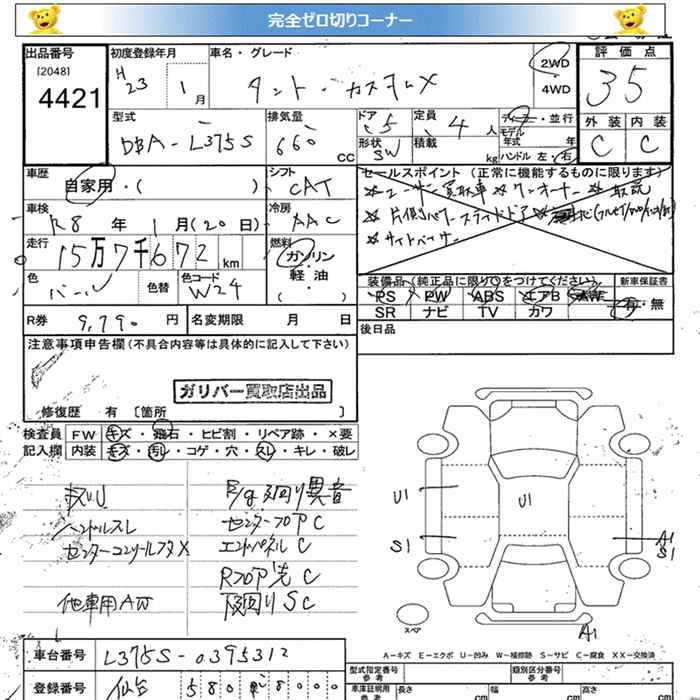 完全ゼロ切りコーナー
出品番号
[2048]
4421
初度登録年月
H23 1月
車名・グレード
タント・カスタムX
2WD
4WD
評価点
35
外装 内装
C C
型式
DBA-L375S
排気量
660 CC
ドア
5
形状
SW
定員
4人
積載
kg
ディーラー・並行
モデル年式 年
ハンドル 左・右
車歴
自家用・( )
シフト
CAT
セールスポイント (正常に機能するものに限ります)
*ユーザー買取車*ワンオーナー*取説
*片側パワースライドドア*
*サイドバイザー
車検
R8年1月(20日)
冷房
AAC
走行
15万7千672km
燃料
ガソリン
軽・油
( )
色
パール
色替
色コード
W24
装備品(純正品に限り○をつけてください)
PS PW ABS エアB AW
SR ナビ TV カワ
新車保証書
有・無
R券 9,790円
名変期限 月 日
後日品
注意事項申告欄(不具合内容等は具体的に記入して下さい)
ガリバー買取店出品
修復歴 有 〔箇所 〕
検査員記入欄
FW キズ・飛石・ヒビ割・リペア跡・×要
内装 キズ・汚レ・コゲ・穴・スレ・キレ・破レ
E/g廻り異音
ハンドルスレ
センターフロアC
エンドパネルC
Rフロア先C
他車用AW
下廻りSC
U1
U1
S1
A1
S1
A1
スペア
A-キズ E-エクボ U-凹み W-補修跡 S-サビ C-腐食 XX-交換済
車台番号
L375S-0395312
登録番号
仙台 580 8000
型式指定番号
類別区分番号
車庫証明用参考
長さ cm
幅 cm
高さ cm